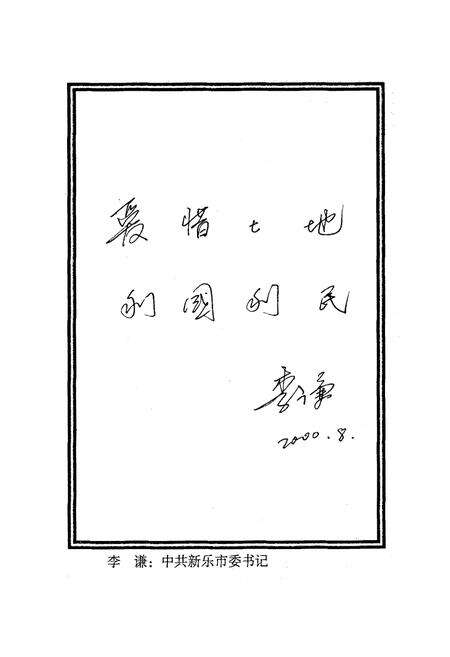 爱惜土地
利國利民
李谦
2000.8.
李 谦：中共新乐市委书记